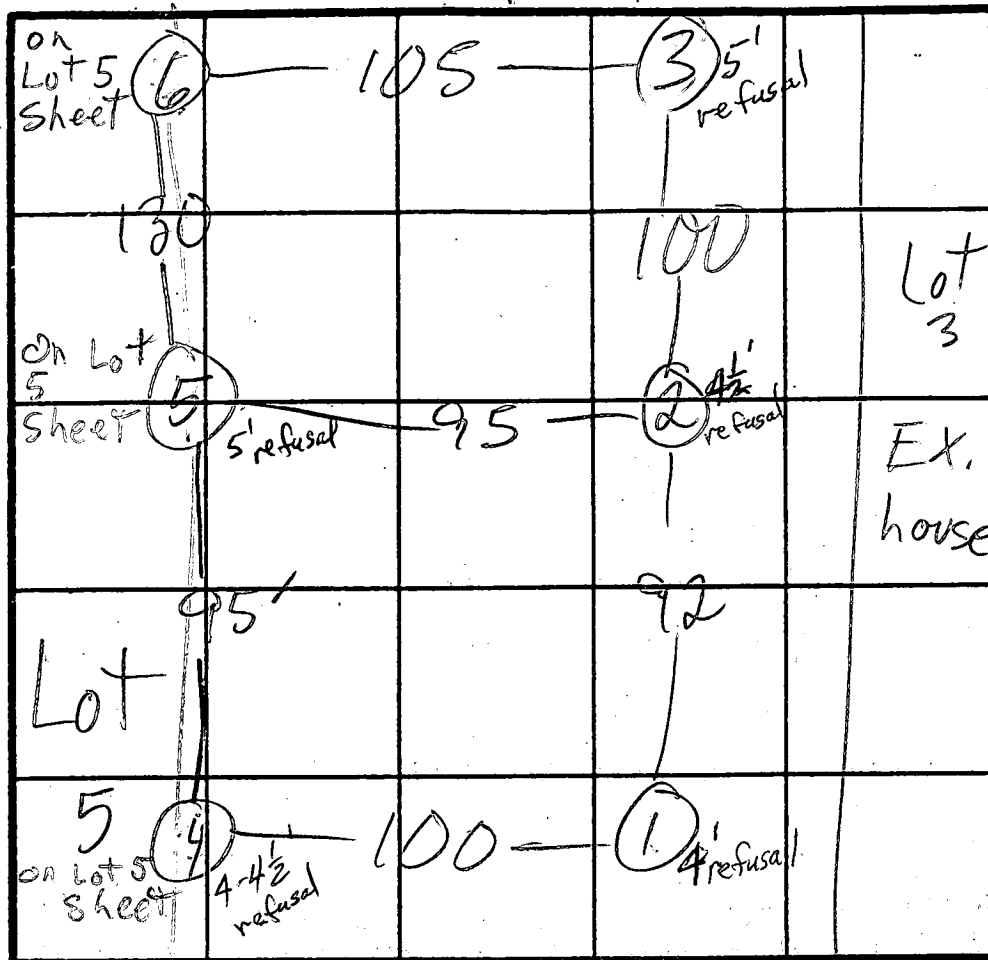 on
Lot 5
Sheet
6
105
3
5'
refusal
130
100
Lot
3
On Lot
5
Sheet
5
5' refusal
95
2
4½'
refusal
Ex.
house
95'
92
Lot
5
on Lot 5
Sheet
4
4-4½
refusal
100
1
4' refusal